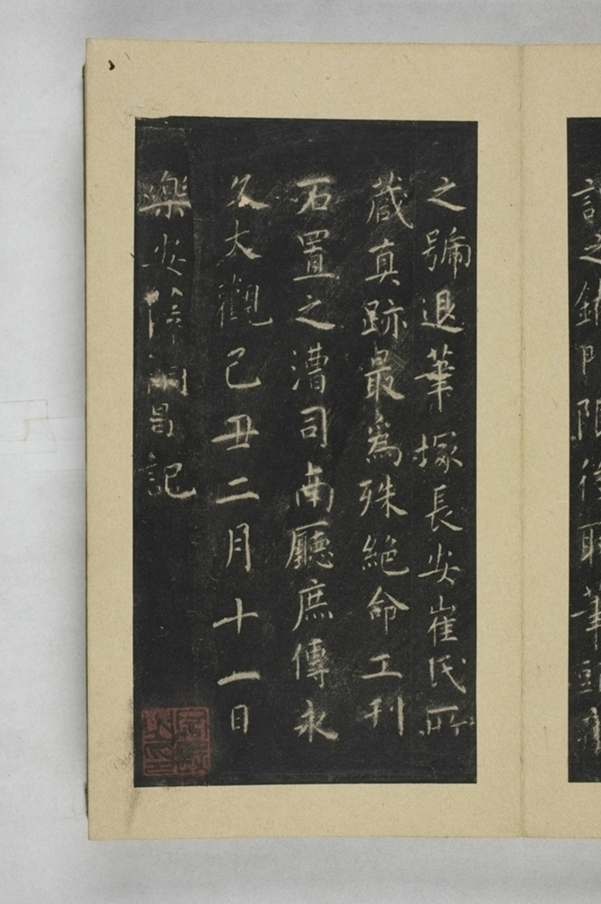 之鐵門限後取筆頭
之號退筆塚長安崔氏所
藏真跡最爲殊絶命工刊
石置之漕司南廳庶傳永
久大觀己丑二月十一日
樂安薛嗣昌記